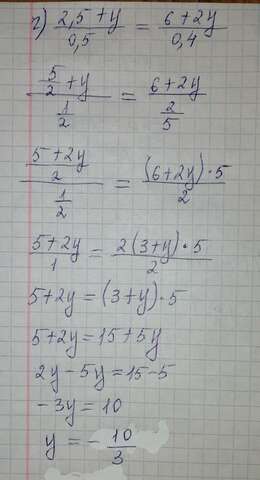 г) (2,5+y)/0,5 = (6+2y)/0,4
(5/2+y)/(1/2) = (6+2y)/(2/5)
((5+2y)/2)/(1/2) = ((6+2y)·5)/2
(5+2y)/1 = (2(3+y)·5)/2
5+2y=(3+y)·5
5+2y=15+5y
2y-5y=15-5
-3y=10
y=-10/3